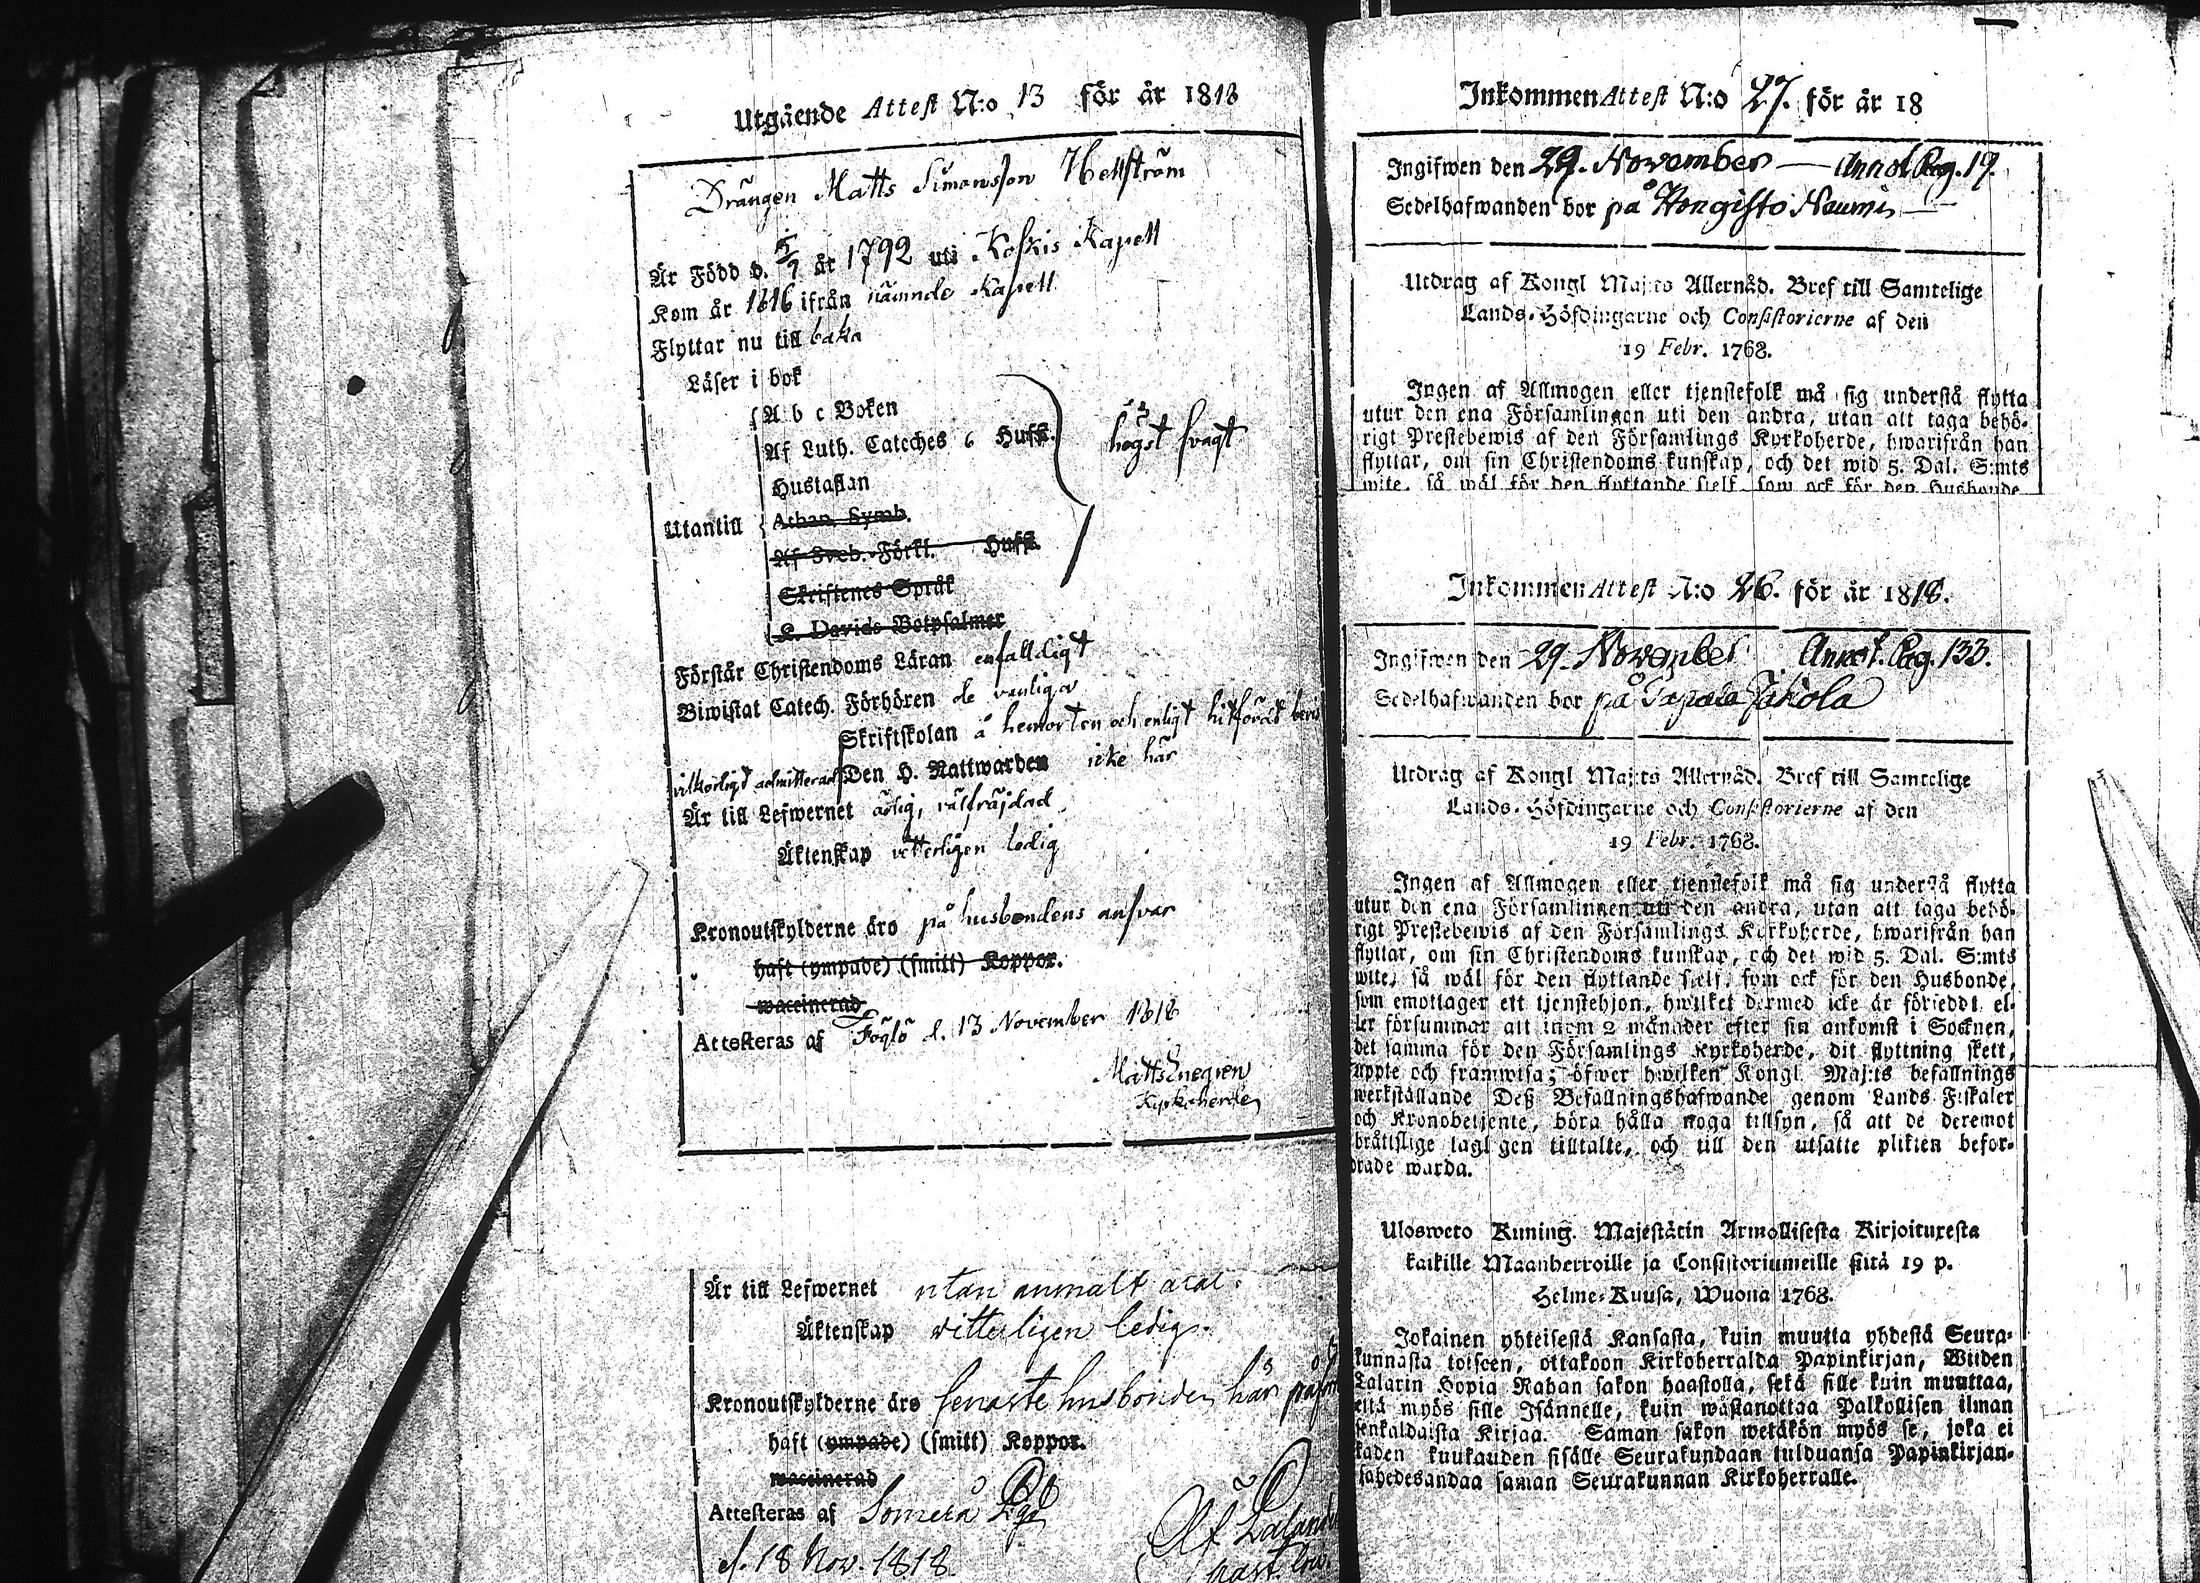 Utgående Attest N:o 13 för år 1818
Drängen Matts Simonsson Hellström
Är Född d. 5/7 år 1792 uti Koskis Kapell
Kom år 1816 ifrån nämnde Kapell
Flyttar nu till baka
Läser i bok
A b c Boken
Af Luth. Cateches 6 Hufst.
högst svagt
Hustaflan
Utantill
Athan. Symb.
Af Sveb. Förkl. Hufst.
Skriftenes Språk
K. Davids Botpsalmer
Förstår Christendoms Läran enfalldigt
Biwistat Catech. Förhören de vanliga
Skriftskolan å hemorten och enligt hitfördt
vilkorligt admitterad Den H. Nattwarden icke här
Är till Lefwernet ärlig, välfräjdad
Äktenskap vetterligen ledig
Kronoutskylderne äro på husbondens ansvar
haft (ympade) (smitt) Koppor.
waccinerad
Attesteras af Föglö d. 13 November 1818
Matts Enegren
Kyrkoherde
Är till Lefwernet utan anmält
Äktenskap vitterligen ledig.
Kronoutskylderne äro senaste husbonden här
haft (ympade) (smitt) Koppor.
waccinerad
Attesteras af Somero
d. 18 Nov. 1818
Inkommen Attest N:o 27. för år 18
Ingifwen den 29. November — Annot. Pag. 19.
Sedelhafwanden bor på Hongisto
Utdrag af Kongl Maj:ts Allernåd. Bref till Samtelige
Lands-Höfdingarne och Consistorierne af den
19 Febr. 1768.
Ingen af Allmogen eller tjenstefolk må sig understå flytta
utur den ena Församlingen uti den andra, utan att taga behö-
rigt Prestebewis af den Församlings Kyrkoherde, hwarifrån han
flyttar, om sin Christendoms kunskap, och det wid 5. Dal. S:mts
wite, så wäl för den flyttande sjelf, som ock för den Husbonde,
Inkommen Attest N:o 26. för år 1818.
Ingifwen den 29. November Annot. Pag. 133.
Sedelhafwanden bor på
Utdrag af Kongl Maj:ts Allernåd. Bref till Samtelige
Lands-Höfdingarne och Consistorierne af den
19 Febr. 1768.
Ingen af Allmogen eller tjenstefolk må sig understå flytta
utur den ena Församlingen uti den andra, utan att taga behö-
rigt Prestebewis af den Församlings Kyrkoherde, hwarifrån han
flyttar, om sin Christendoms kunskap, och det wid 5. Dal. S:mts
wite, så wäl för den flyttande sjelf, som ock för den Husbonde,
som emottager ett tjenstehjon, hwilket dermed icke är försedt el-
ler försummar att inom 2 månader efter sin ankomst i Socknen,
det samma för den Församlings Kyrkoherde, dit flyttning skett,
uppte och framwisa; öfwer hwilken Kongl Maj:ts befallnings
werkställande Deß Befallningshafwande genom Lands Fiskaler
och Kronobetjente, böra hålla noga tillsyn, så att de deremot
bråttslige lagligen tilltalte, och till den utsatte plikten befor-
drade warda.
Ulosweto Kuning. Majestätin Armollisesta Kirjoituxesta
kaikille Maanherroille ja Consistoriumeille siitä 19 p.
Helme-Kuusa, Wuona 1768.
Jokainen yhteisestä Kansasta, kuin muutta yhdestä Seura-
kunnasta toiseen, ottakoon Kirkoherralda Papinkirjan, Wiiden
Talarin Hopia Rahan sakon haastolla, sekä sille kuin muuttaa,
että myös sille Isännelle, kuin wastanottaa Palkollisen ilman
senkaldaista Kirjaa. Saman sakon wetäkön myös se, joka ei
kaden kuukauden sisälle Seurakundaan tulduansa Papinkirjan-
sahedesandaa saman Seurakunnan Kirkoherralle.